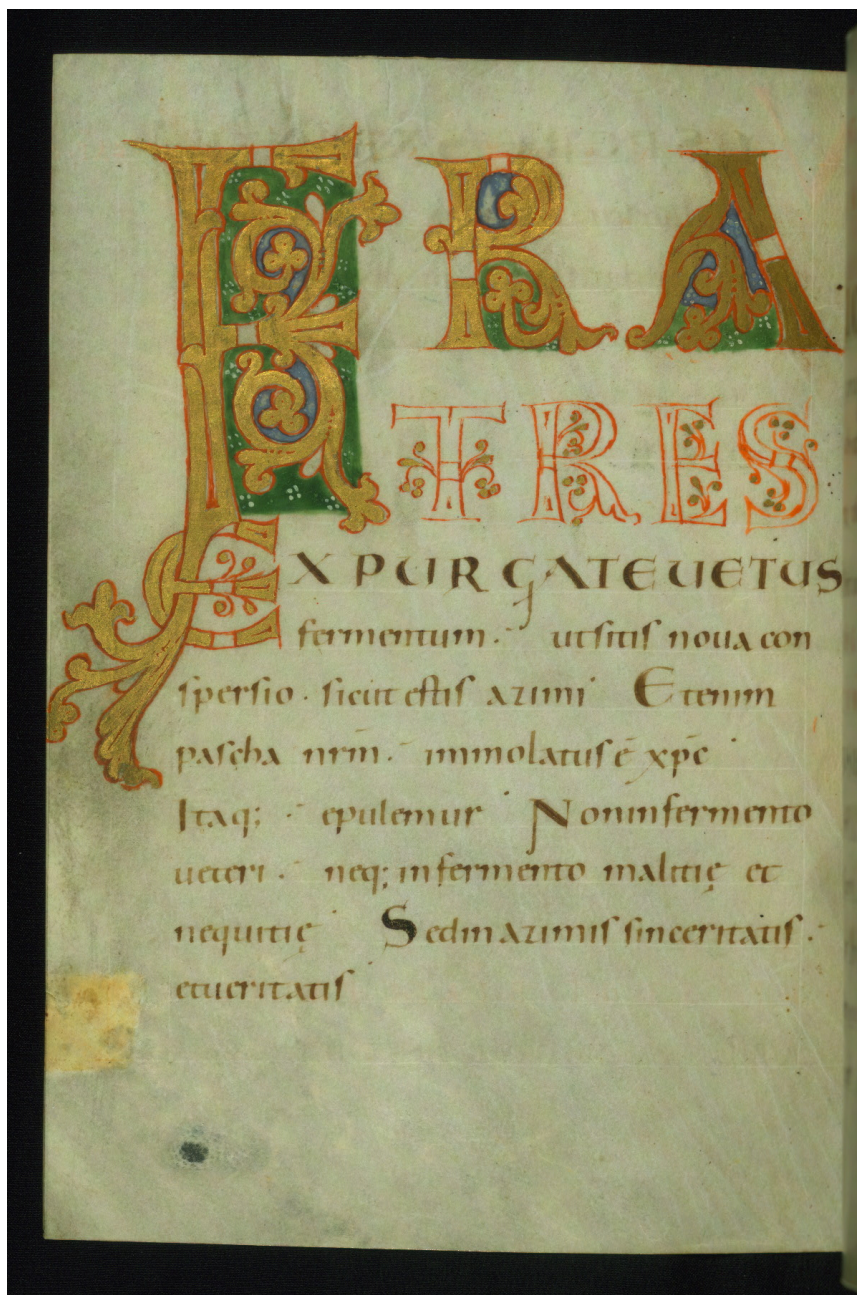 FRA
TRES
EXPURGATE UETUS
fermentum. ut sitis noua con
spersio. sicut estis azimi Etenim
pascha nr̄m. immolatus ē xp̄c
Itaq; epulemur Non in fermento
ueteri. neq; in fermento malitię et
nequitię Sed in azimis sinceritatis.
et ueritatis